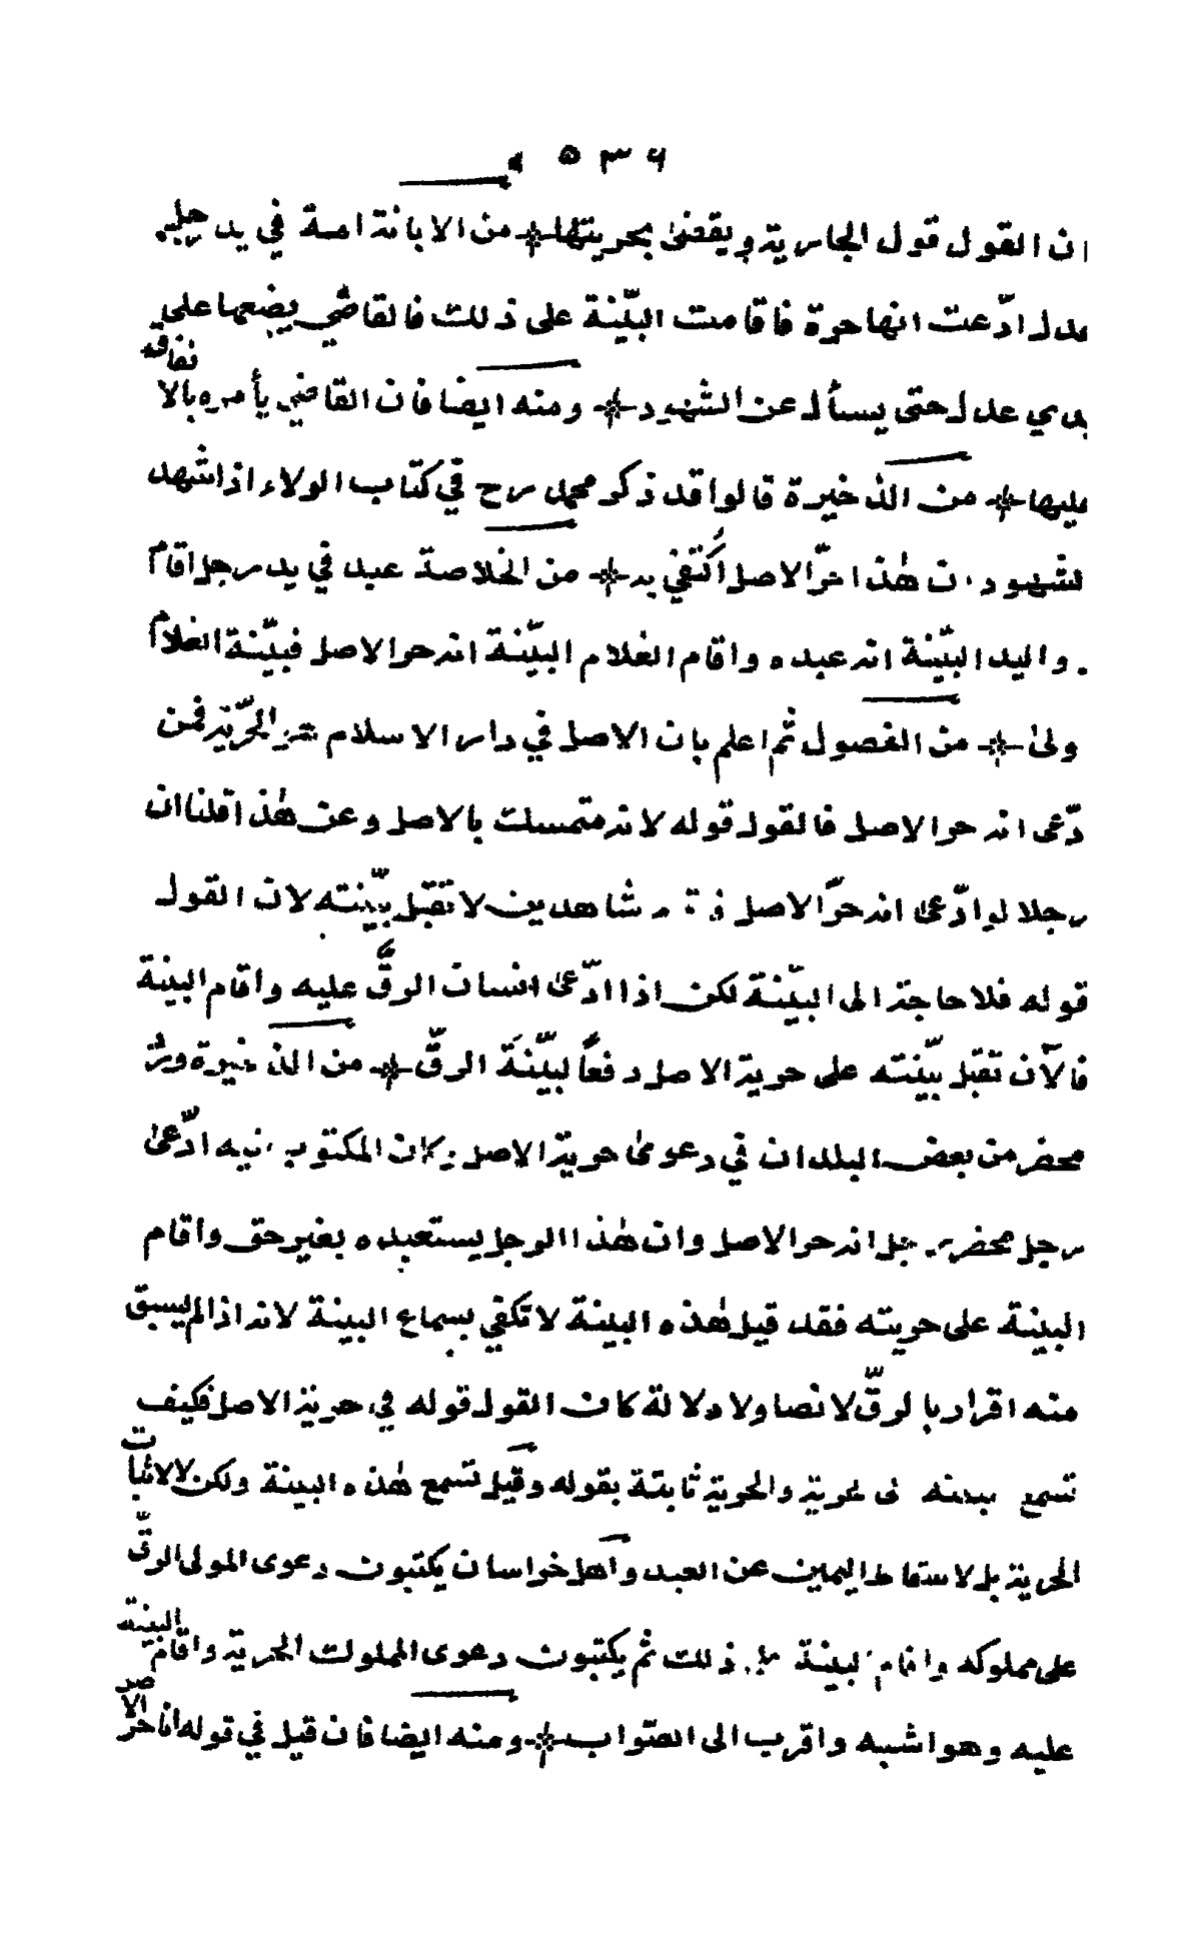 ٥٣٦
ان القول قول الجارية ويقضى بحريتها من الابانة امة في يد رجل
عدل ادّعت انها حرة فاقامت البيّنة على ذلك فالقاضي يضعها على
يدي عدل حتى يسأل عن الشهود ومنه ايضا فان القاضي يأمره بالانفاق
عليها من الذخيرة قالوا قد ذكر محمد رح في كتاب الولاء اذا شهد
لشهود ان هٰذا حرّ الاصل اُكتفي به من الخلاصة عبد في يد رجل اقام
واليد البيّنة انه عبده واقام الغلام البيّنة انه حر الاصل فبيّنة الغلام
ولىٰ من الفصول ثم اعلم بان الاصل في دار الاسلام هو الحرّية فمن
دّعى انه حر الاصل فالقول قوله لانه متمسك بالاصل وعن هٰذا قلنا ان
رجلا لو ادّعىٰ انه حرّ الاصل شاهدين لا تقبل بيّنته لان القول
قوله فلا حاجة الى البيّنة لكن اذا ادّعىٰ انسان الرقّ عليه واقام البينة
فالآن تقبل بيّنته على حرية الاصل دفعاً لبيّنة الرقّ من الذخيرة ورد
محضر من بعض البلدان في دعوىٰ حرية الاصل وكان المكتوب فيه ادّعىٰ
رجل محضر رجل انه حر الاصل وان هٰذا الرجل يستعبده بغير حق واقام
البينة على حريته فقد قيل هٰذه البينة لا تكفي بسماع البينة لانه اذا لم يسبق
منه اقرار بالرقّ لا نصا ولا دلالة كان القول قوله في حرية الاصل فكيف
تسمع بينته في حرية والحرية ثابتة بقوله وقيل تسمع هٰذه البينة ولكن لا لاثبات
الحرية بل لاسقاط اليمين عن العبد واهل خراسان يكتبون دعوى المولى الرقّ
على مملوكه واقام البينة على ذلك ثم يكتبون دعوى المملوك الحرية واقام البينة
عليه وهو اشبه واقرب الى الصّواب ومنه ايضا فان قيل في قوله انا حرّ الاصل